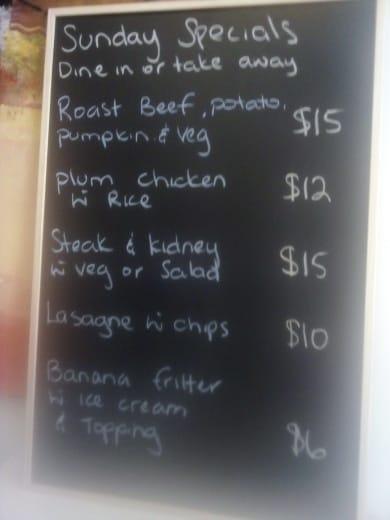 Sunday Specials
Dine in or take away
Roast Beef, potato,
pumpkin & veg $15
plum chicken
w Rice $12
Steak & kidney
w veg or Salad $15
Lasagne w chips $10
Banana fritter
w ice cream
& Topping $6